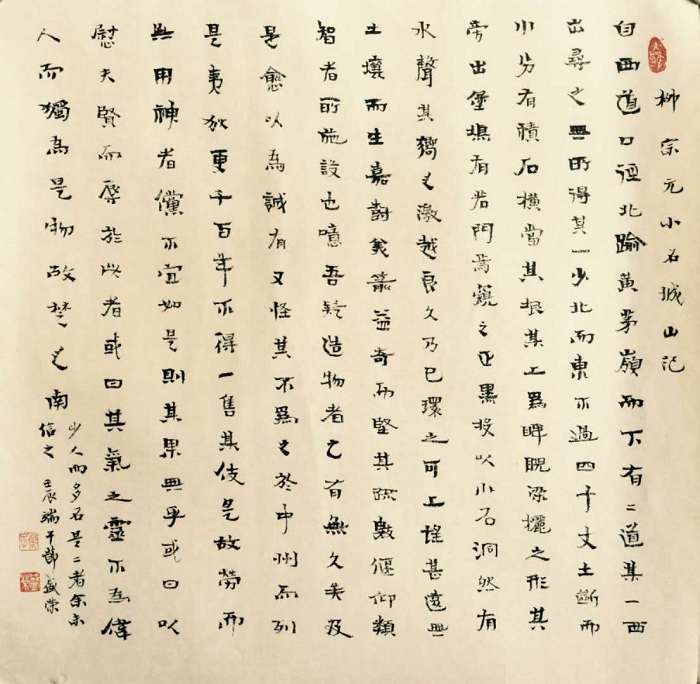 柳宗元小石城山记
自西道口徑北踰黄茅嶺而下有二道其一西
出尋之無所得其一少北而東不過四十丈土斷而
川分有積石橫當其垠其上為睥睨梁欐之形其
旁出堡塢有若門焉窺之正黑投以小石洞然有
水聲其響之激越良久乃已環之可上望甚遠無
土壤而生嘉樹美箭益奇而堅其疏數偃仰類
智者所施設也噫吾疑造物者之有無久矣及
是愈以為誠有又怪其不為之於中州而列
是夷狄更千百年不得一售其伎是故勞而
無用神者儻不宜如是則其果無乎或曰以
慰夫賢而辱於此者或曰其氣之靈不為偉
人而獨為是物故楚之南
少人而多石是二者余未
信之 壬辰端午節盛荣